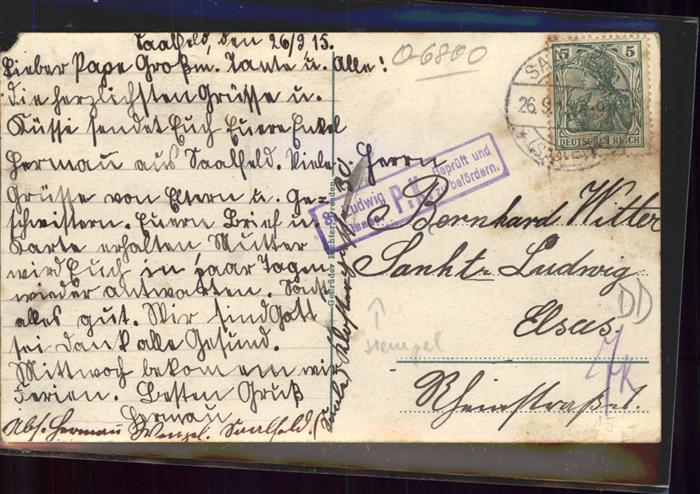 Saalfeld, den 26/9 15.
Lieber Pape Großm. Tante u. Alle!
Die herzlichsten Grüsse u.
Küsse sendet Euch Euere Enkel
Herman aus Saalfeld. Viele
Grüsse von Eltern u. Ge-
schwistern. Euern Brief u.
Karte erhalten Mutter
wird Euch in paar Tagen
wieder antworten. Sonst
alles gut. Wir sind Gott
sei dank alle Gesund.
Mittwoch bekommen wir
Ferien. Besten Gruß
Herman
Abs. Herman Wenzel. Saalfeld. (Saale)
Gebrüder Richter, Dresden
O-6800
5 5
DEUTSCHES REICH
SA
26.9
* (S
Ludwig
P.K.
Geprüft und
zu befördern.
Herrn
Bernhard Witter
Sankt-Ludwig
Elsas.
Rheinstraße 1.
stempel
DD